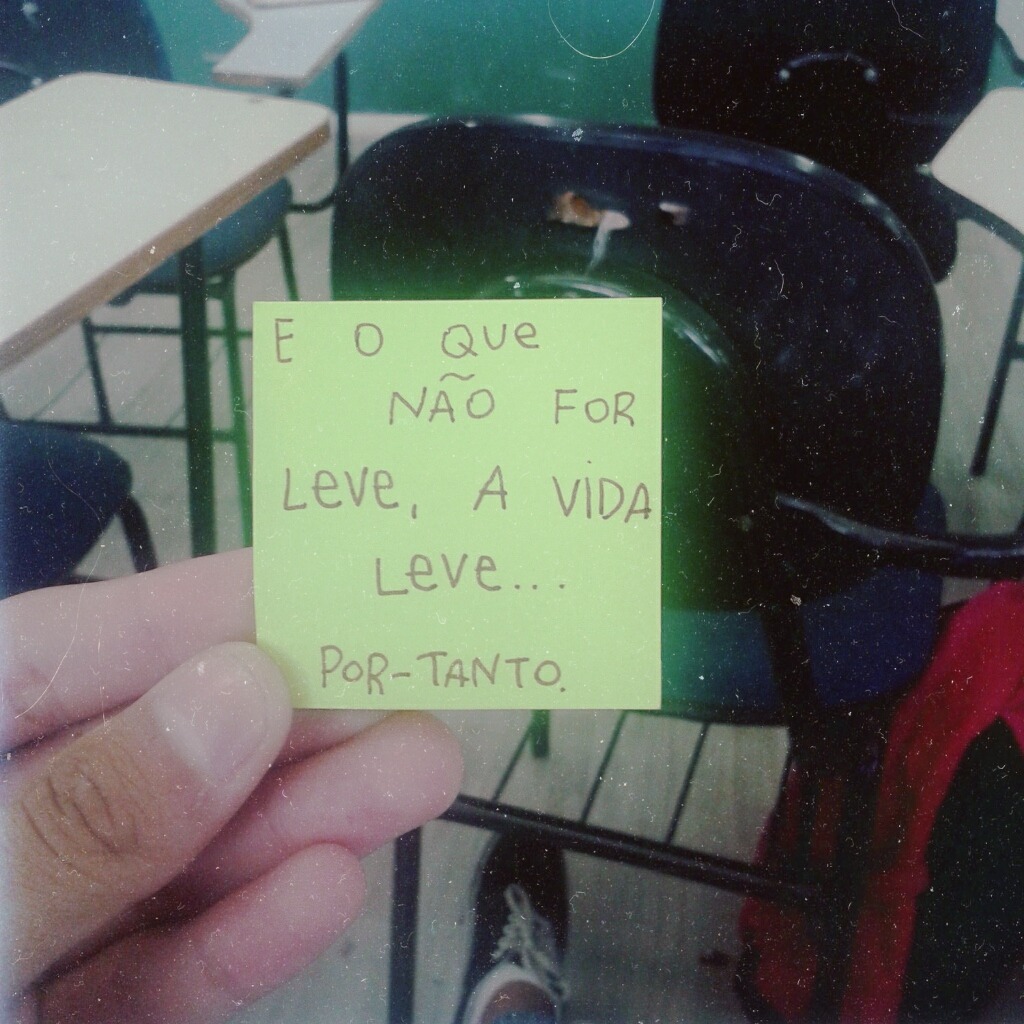 E O QUE
NÃO FOR
LEVE, A VIDA
LEVE...
POR-TANTO.